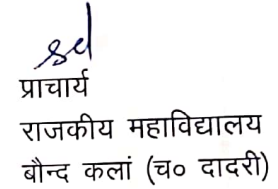 sd
प्राचार्य
राजकीय महाविद्यालय
बौन्द कलां (च० दादरी)